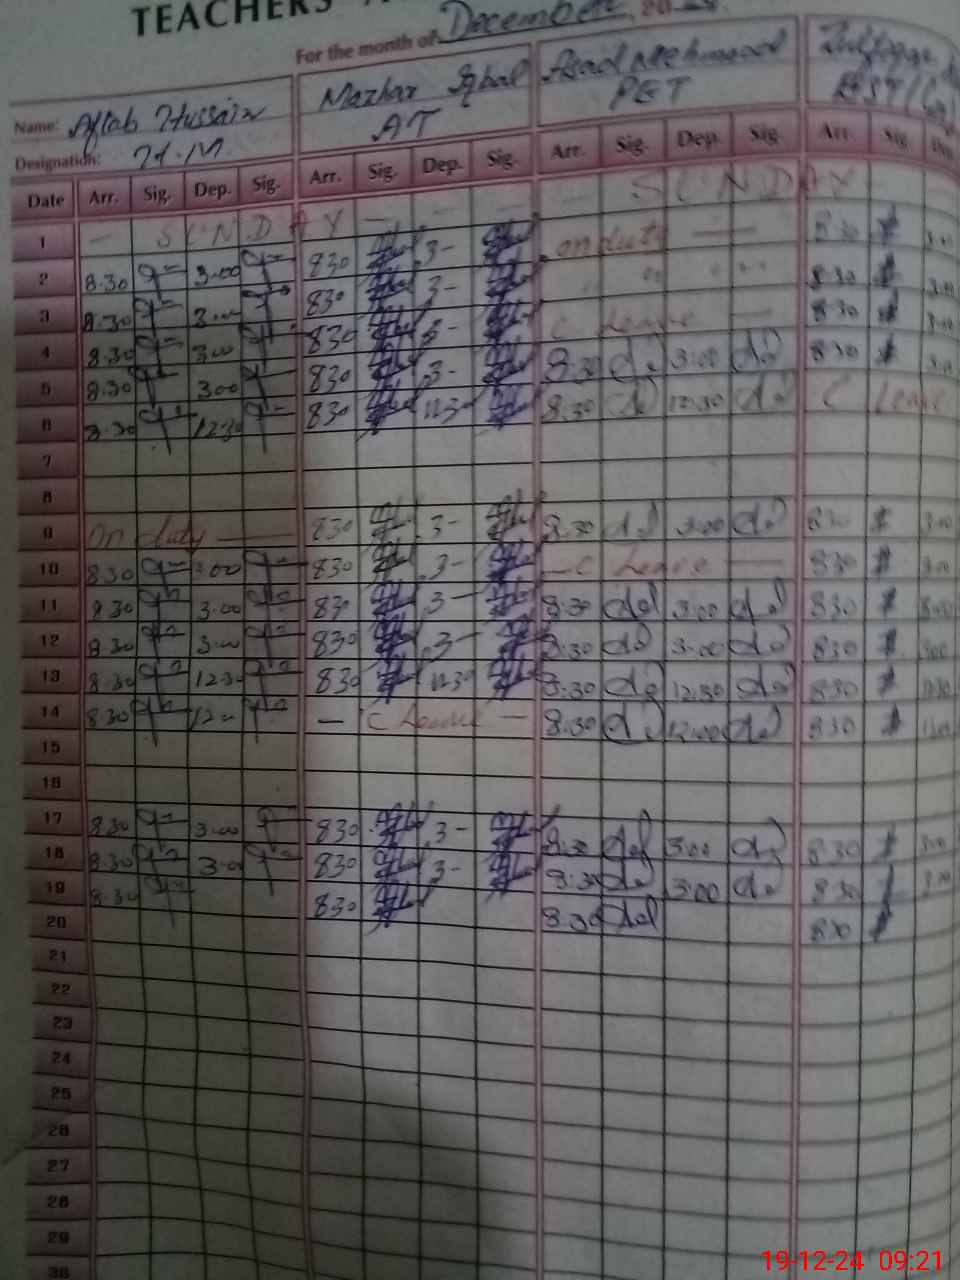 TEACHERS'
For the month of December 20
Name: Aftab Hussain Mazhar Iqbal Asad Mehmood Zulfiqar
Designation: H.M AT PET
Date Arr. Sig. Dep. Sig. Arr. Sig. Dep. Sig. Arr. Sig. Dep. Sig. Arr. Sig Dep
1 — SUNDAY — — — — SUNDAY
2 8.30 3.00 830 3- on duty — 8:30 3:00
3 8.30 3.00 830 3- " " " " 8:30 3:00
4 8.30 3.00 830 3- C. Leave — 8:30 3:00
5 8.30 3.00 830 3- 8:30 3:00 8:30 3:00
6 8.30 12.30 830 1230 8:30 12:30 C Leave
7
8
9 On duty — 830 3- 8:30 3:00 830 3:00
10 8.30 3.00 830 3- — C Leave — 830 3:00
11 8.30 3.00 830 3- 8:30 3:00 830 3:00
12 8.30 3.00 830 3- 8:30 3:00 830 3:00
13 8.30 12.30 830 1230 8:30 12:30 830 12:30
14 8.30 12- — C Leave — 8:30 12:00 830 12:00
15
16
17 8.30 3.00 830 3- 8:30 3:00 830 3:00
18 8.30 3.00 830 3- 8:30 3:00 830 3:00
19 8.30 830 8:30 830
20
21
22
23
24
25
26
27
28
29
30
19-12-24 09:21